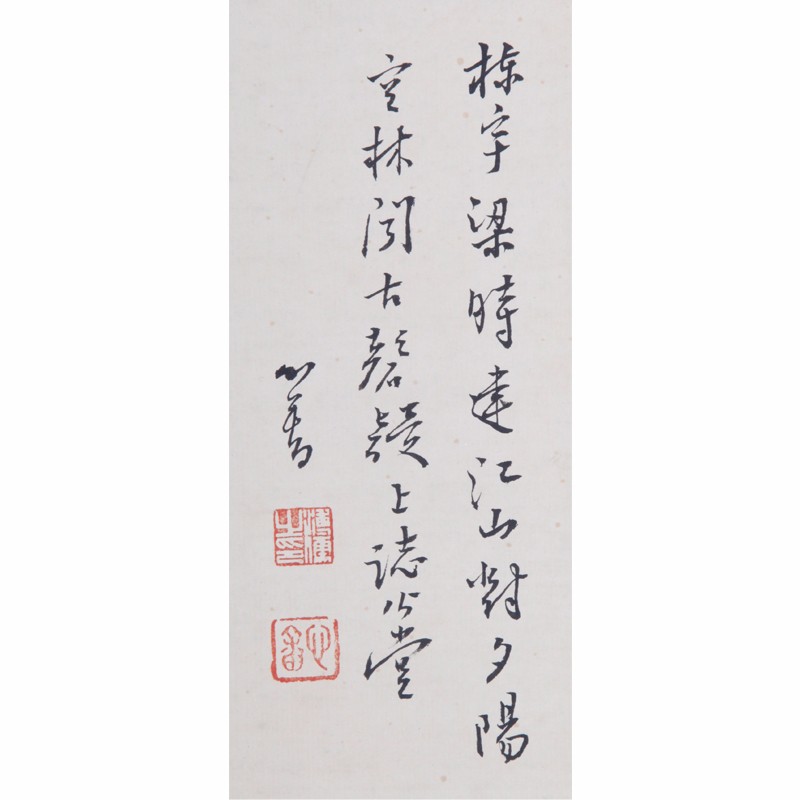 棟宇梁時建江山對夕陽
空林聞古磬疑上誌公堂
心畬
溥儒之印
心畬